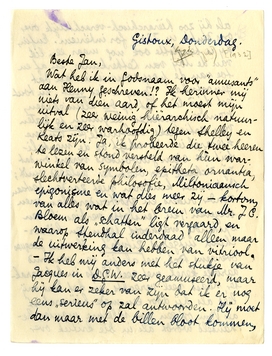 Gistoux, Donderdag.
Beste Jan,
Wat heb ik in Godsnaam voor "amusants"
aan Henny geschreven!? Ik herinner mij
niet van dien aard, of het moest mijn
uitval (zeer weinig hiërarchisch natuur-
lijk en zeer warhoofdig) tegen Shelley en
Keats zijn. Ja, ik probeerde die twee heeren
te lezen en stond versteld van hun war-
winkel van symbolen, epitheta ornantia,
slechtverteerde philosofie, Miltoniaansch
epigonisme en wat dies meer zij – kortom
van alles wat in het brein van Mr. J. C.
Bloem als schatten ligt vergaard, en
waarop Stendhal inderdaad alleen maar
de uitwerking kan hebben van vitriool.
– Ik heb mij anders met het stukje van
Jacques in D.G.W. zeer geamuseerd, maar
hij kan er zeker van zijn dat ik er nog
eens "serieus" op zal antwoorden. Hij moet
dan maar met de billen bloot kommen,